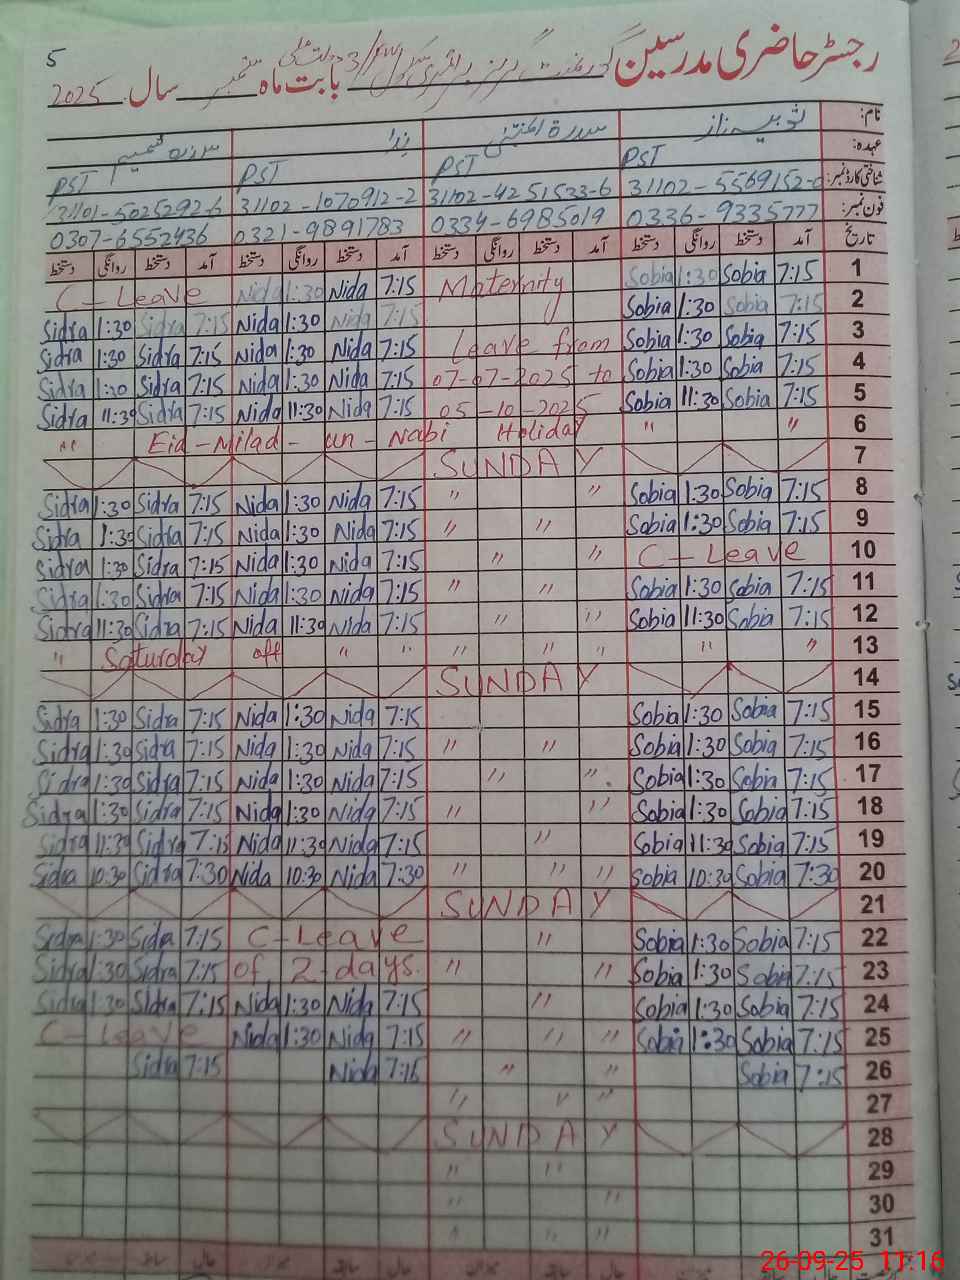 5
رجسٹر حاضری مدرسین گورنمنٹ گرلز پرائمری سکول بابت ماہ ستمبر سال 2025
نام: ثوبیہ ناز سدرۃ المنتہیٰ ندا
عہدہ: PST PST PST PST
شناختی کارڈ نمبر: 31102-4251533-6 31102-1070912-2 31101-5025292-6
فون نمبر: 0336-9335777 0334-6985019 0321-9891783 0307-6552436
تاریخ آمد دستخط روانگی دستخط آمد دستخط روانگی دستخط آمد دستخط روانگی دستخط آمد دستخط روانگی دستخط
C-Leave Nida 1:30 Nida 7:15 Maternity Sobia 1:30 Sobia 7:15 1
Sidra 1:30 Sidra 7:15 Nida 1:30 Nida 7:15 Sobia 1:30 Sobia 7:15 2
Sidra 1:30 Sidra 7:15 Nida 1:30 Nida 7:15 Leave from Sobia 1:30 Sobia 7:15 3
Sidra 1:30 Sidra 7:15 Nida 1:30 Nida 7:15 07-07-2025 to Sobia 1:30 Sobia 7:15 4
Sidra 11:30 Sidra 7:15 Nida 11:30 Nida 7:15 05-10-2025 Sobia 11:30 Sobia 7:15 5
" Eid-Milad-un-Nabi Holiday " " 6
SUNDAY 7
Sidra 1:30 Sidra 7:15 Nida 1:30 Nida 7:15 " " Sobia 1:30 Sobia 7:15 8
Sidra 1:30 Sidra 7:15 Nida 1:30 Nida 7:15 " " Sobia 1:30 Sobia 7:15 9
Sidra 1:30 Sidra 7:15 Nida 1:30 Nida 7:15 " " C-Leave 10
Sidra 1:30 Sidra 7:15 Nida 1:30 Nida 7:15 " " Sobia 1:30 Sobia 7:15 11
Sidra 11:30 Sidra 7:15 Nida 11:30 Nida 7:15 " " Sobia 11:30 Sobia 7:15 12
" Saturday off " " " " " " " 13
SUNDAY 14
Sidra 1:30 Sidra 7:15 Nida 1:30 Nida 7:15 Sobia 1:30 Sobia 7:15 15
Sidra 1:30 Sidra 7:15 Nida 1:30 Nida 7:15 " " Sobia 1:30 Sobia 7:15 16
Sidra 1:30 Sidra 7:15 Nida 1:30 Nida 7:15 " " Sobia 1:30 Sobia 7:15 17
Sidra 1:30 Sidra 7:15 Nida 1:30 Nida 7:15 " " Sobia 1:30 Sobia 7:15 18
Sidra 11:30 Sidra 7:15 Nida 11:30 Nida 7:15 " Sobia 11:30 Sobia 7:15 19
Sidra 10:30 Sidra 7:30 Nida 10:30 Nida 7:30 " " " Sobia 10:30 Sobia 7:30 20
SUNDAY 21
Sidra 1:30 Sidra 7:15 C-Leave " Sobia 1:30 Sobia 7:15 22
Sidra 1:30 Sidra 7:15 of 2-days. " " Sobia 1:30 Sobia 7:15 23
Sidra 1:30 Sidra 7:15 Nida 1:30 Nida 7:15 " Sobia 1:30 Sobia 7:15 24
C-Leave Nida 1:30 Nida 7:15 " " " Sobia 1:30 Sobia 7:15 25
Sidra 7:15 Nida 7:15 " " Sobia 7:15 26
" " " 27
SUNDAY 28
" " 29
" " 30
" " " 31
26-09-25 11:16